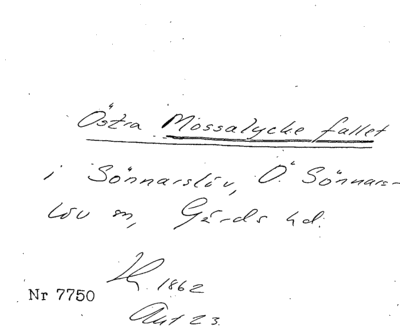 Östra Mossalycke fallet
i Sönnarslöv, Ö. Sönnars-
löv sn, Gärds hd.
1862
Nr 7750
Akt 23.